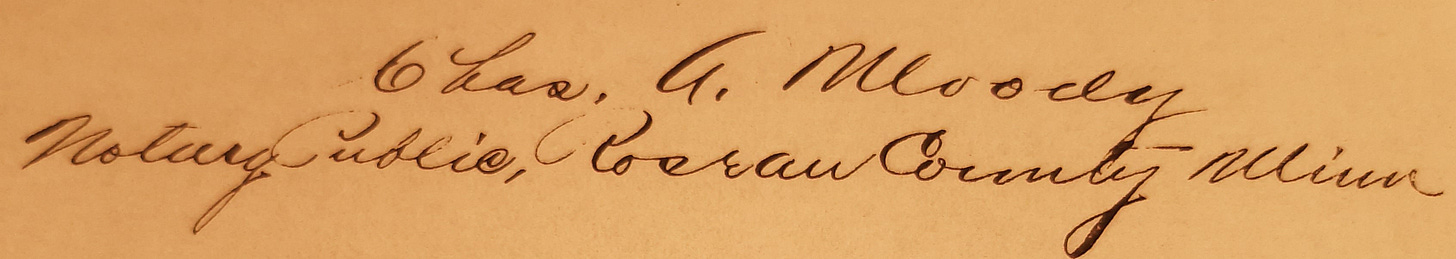 Chas. A. Moody
Notary Public, Roseau County Minn